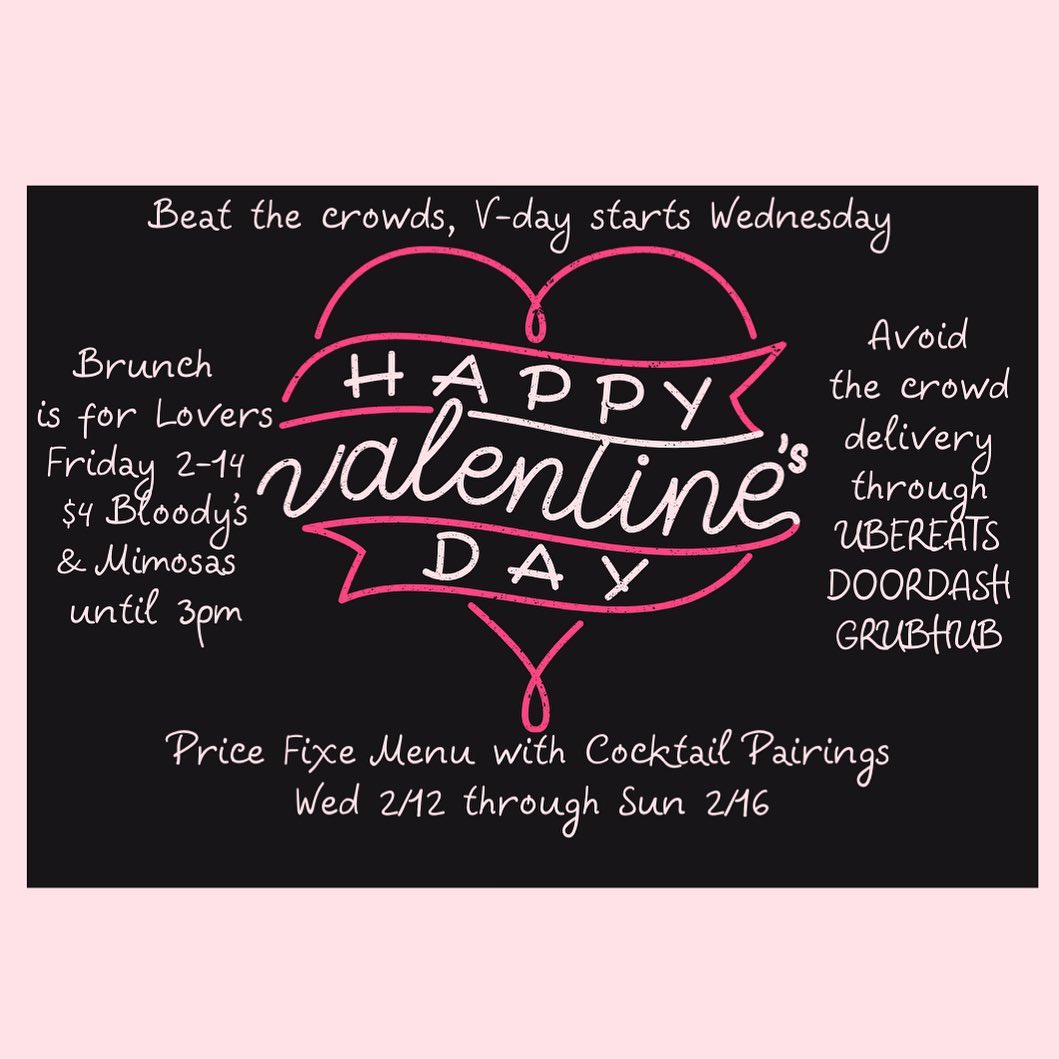 Beat the crowds, V-day starts Wednesday
Brunch
is for Lovers
Friday 2-14
$4 Bloody's
& Mimosas
until 3pm
HAPPY
valentine's
DAY
Avoid
the crowd
delivery
through
UBEREATS
DOORDASH
GRUBHUB
Price Fixe Menu with Cocktail Pairings
Wed 2/12 through Sun 2/16